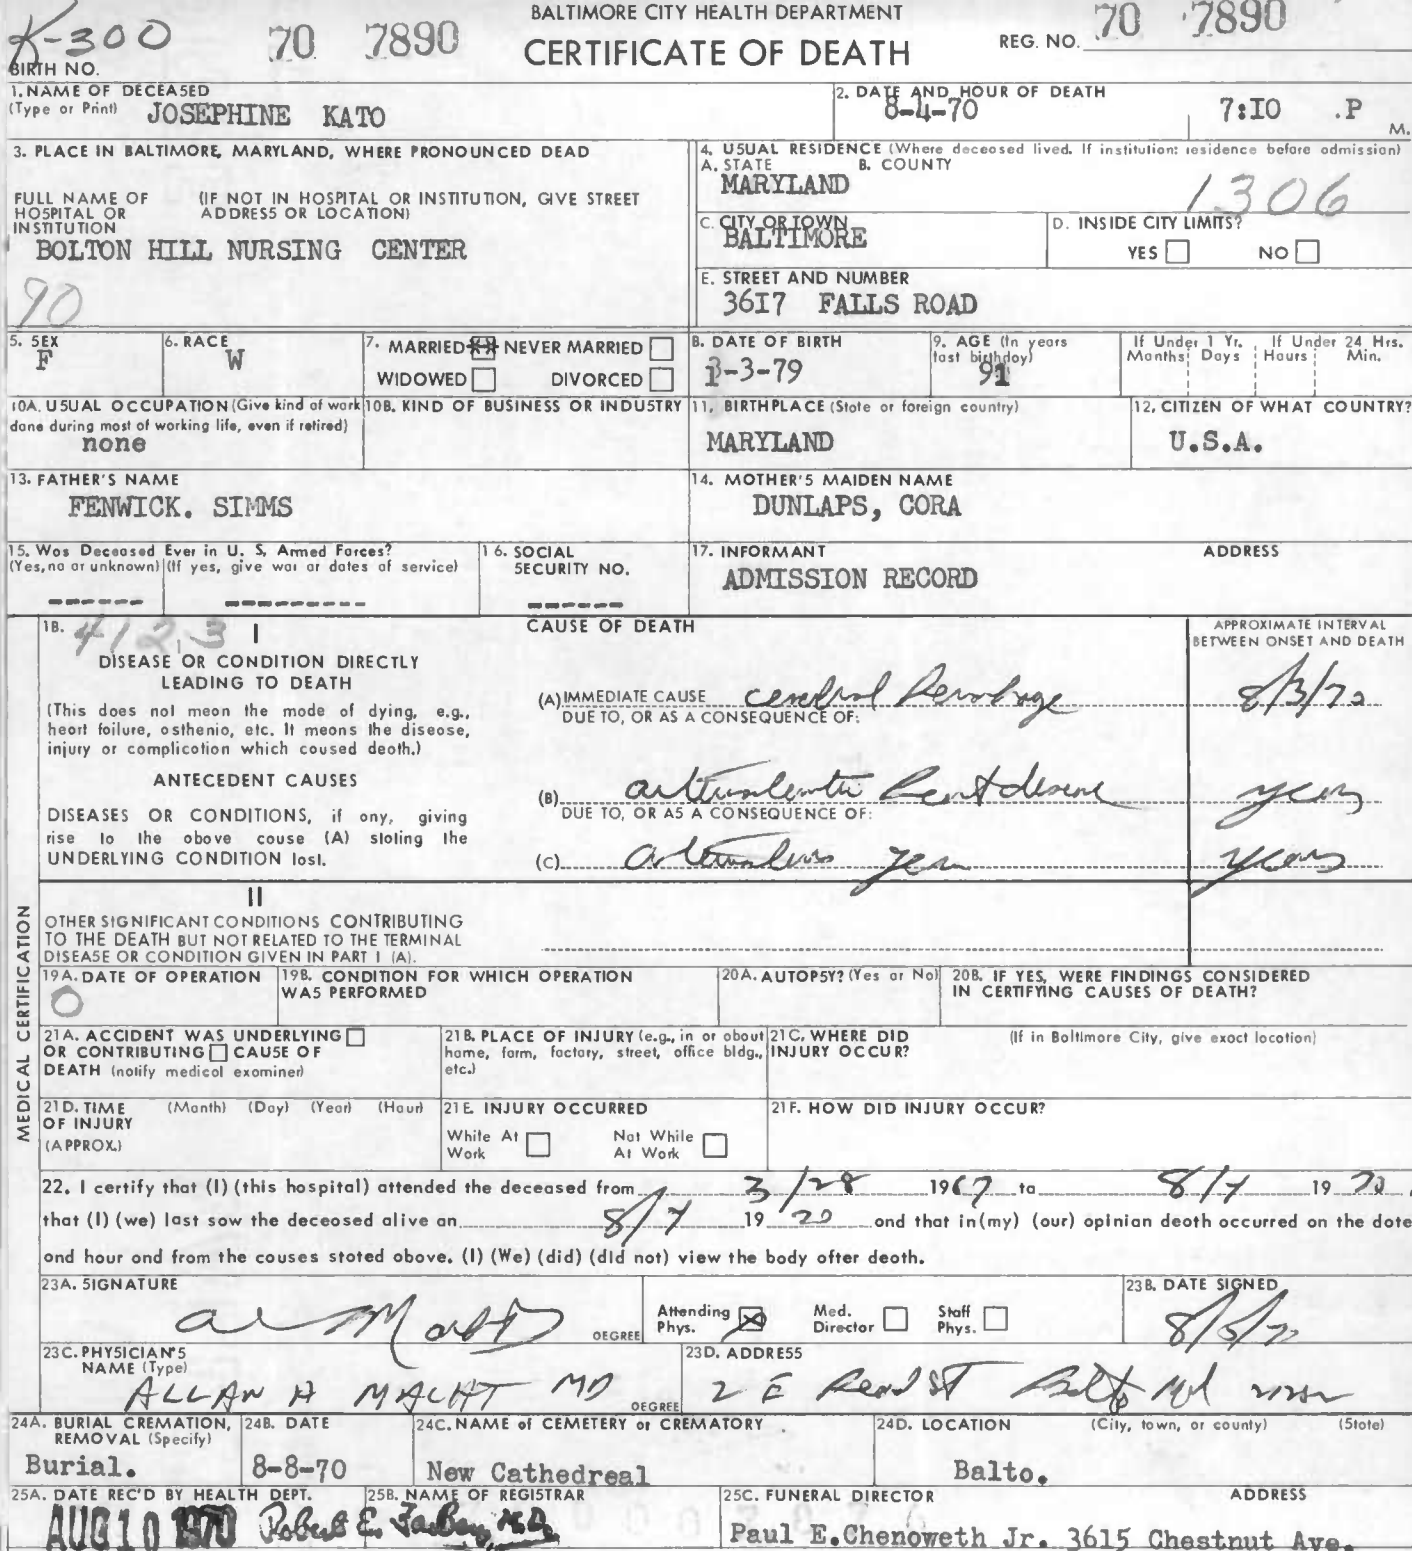 K-300 70 7890 BALTIMORE CITY HEALTH DEPARTMENT 70 7890
BIRTH NO. CERTIFICATE OF DEATH REG. NO.
1. NAME OF DECEASED
(Type or Print) JOSEPHINE KATO
2. DATE AND HOUR OF DEATH
8-4-70 7:IO .P M.
3. PLACE IN BALTIMORE, MARYLAND, WHERE PRONOUNCED DEAD
FULL NAME OF HOSPITAL OR INSTITUTION (IF NOT IN HOSPITAL OR INSTITUTION, GIVE STREET ADDRESS OR LOCATION)
BOLTON HILL NURSING CENTER
90
4. USUAL RESIDENCE (Where deceased lived. If institution: residence before admission)
A. STATE B. COUNTY
MARYLAND 1306
C. CITY OR TOWN
BALTIMORE
D. INSIDE CITY LIMITS?
YES NO
E. STREET AND NUMBER
36I7 FALLS ROAD
5. SEX
F
6. RACE
W
7. MARRIED XX NEVER MARRIED
WIDOWED DIVORCED
8. DATE OF BIRTH
-3-79
9. AGE (In years last birthday)
91
If Under 1 Yr. If Under 24 Hrs.
Months Days Hours Min.
10A. USUAL OCCUPATION (Give kind of work done during most of working life, even if retired)
none
10B. KIND OF BUSINESS OR INDUSTRY
11. BIRTHPLACE (State or foreign country)
MARYLAND
12. CITIZEN OF WHAT COUNTRY?
U.S.A.
13. FATHER'S NAME
FENWICK. SIMMS
14. MOTHER'S MAIDEN NAME
DUNLAPS, CORA
15. Was Deceased Ever in U. S. Armed Forces?
(Yes, no or unknown) (If yes, give war or dates of service)
------ ---------
16. SOCIAL SECURITY NO.
------
17. INFORMANT ADDRESS
ADMISSION RECORD
MEDICAL CERTIFICATION
18. 412.3 I CAUSE OF DEATH
APPROXIMATE INTERVAL BETWEEN ONSET AND DEATH
DISEASE OR CONDITION DIRECTLY
LEADING TO DEATH
(This does not mean the mode of dying, e.g.,
heart failure, asthenia, etc. It means the disease,
injury or complication which caused death.)
(A) IMMEDIATE CAUSE 8/3/70
DUE TO, OR AS A CONSEQUENCE OF:
ANTECEDENT CAUSES
DISEASES OR CONDITIONS, if any, giving
rise to the above cause (A) stating the
UNDERLYING CONDITION last.
(B) years
DUE TO, OR AS A CONSEQUENCE OF:
(C) years
II
OTHER SIGNIFICANT CONDITIONS CONTRIBUTING
TO THE DEATH BUT NOT RELATED TO THE TERMINAL
DISEASE OR CONDITION GIVEN IN PART I (A).
19A. DATE OF OPERATION
0
19B. CONDITION FOR WHICH OPERATION WAS PERFORMED
20A. AUTOPSY? (Yes or No)
20B. IF YES, WERE FINDINGS CONSIDERED IN CERTIFYING CAUSES OF DEATH?
21A. ACCIDENT WAS UNDERLYING
OR CONTRIBUTING CAUSE OF
DEATH (notify medical examiner)
21B. PLACE OF INJURY (e.g., in or about home, farm, factory, street, office bldg., etc.)
21C. WHERE DID INJURY OCCUR? (If in Baltimore City, give exact location)
21D. TIME OF INJURY (APPROX.) (Month) (Day) (Year) (Hour)
21E. INJURY OCCURRED
While At Work Not While At Work
21F. HOW DID INJURY OCCUR?
22. I certify that (I) (this hospital) attended the deceased from 3/28 1967 to 19 70,
that (I) (we) last saw the deceased alive on 19 70 and that in (my) (our) opinion death occurred on the date
and hour and from the causes stated above. (I) (We) (did) (did not) view the body after death.
23A. SIGNATURE
DEGREE
Attending Phys. X Med. Director Staff Phys.
23B. DATE SIGNED
8/5/70
23C. PHYSICIAN'S NAME (Type)
ALLAN H MACHT MD DEGREE
23D. ADDRESS
2 E Read ST Balto Md
24A. BURIAL CREMATION, REMOVAL (Specify)
Burial.
24B. DATE
8-8-70
24C. NAME of CEMETERY or CREMATORY
New Cathedreal
24D. LOCATION (City, town, or county) (State)
Balto.
25A. DATE REC'D BY HEALTH DEPT.
AUG 10 1970
25B. NAME OF REGISTRAR
Robert E. Farber, M.D.
25C. FUNERAL DIRECTOR ADDRESS
Paul E.Chenoweth Jr. 3615 Chestnut Ave.